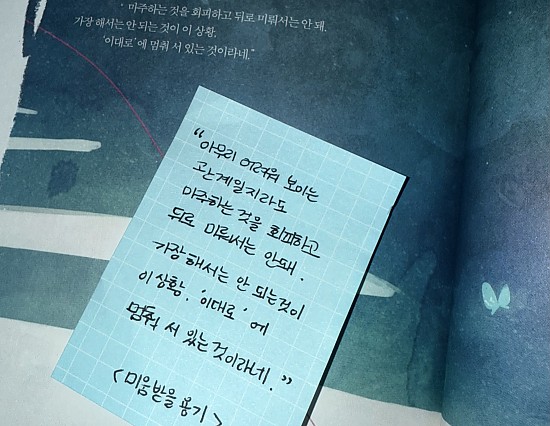 마주하는 것을 회피하고 뒤로 미뤄서는 안 돼.
가장 해서는 안 되는 것이 이 상황,
'이대로'에 멈춰 서 있는 것이라네."
"아무리 어려워 보이는
관계일지라도
마주하는 것을 회피하고
뒤로 미뤄서는 안돼.
가장 해서는 안 되는것이
이 상황. '이대로'에
멈춰 서 있는 것이라네."
<미움받을 용기>